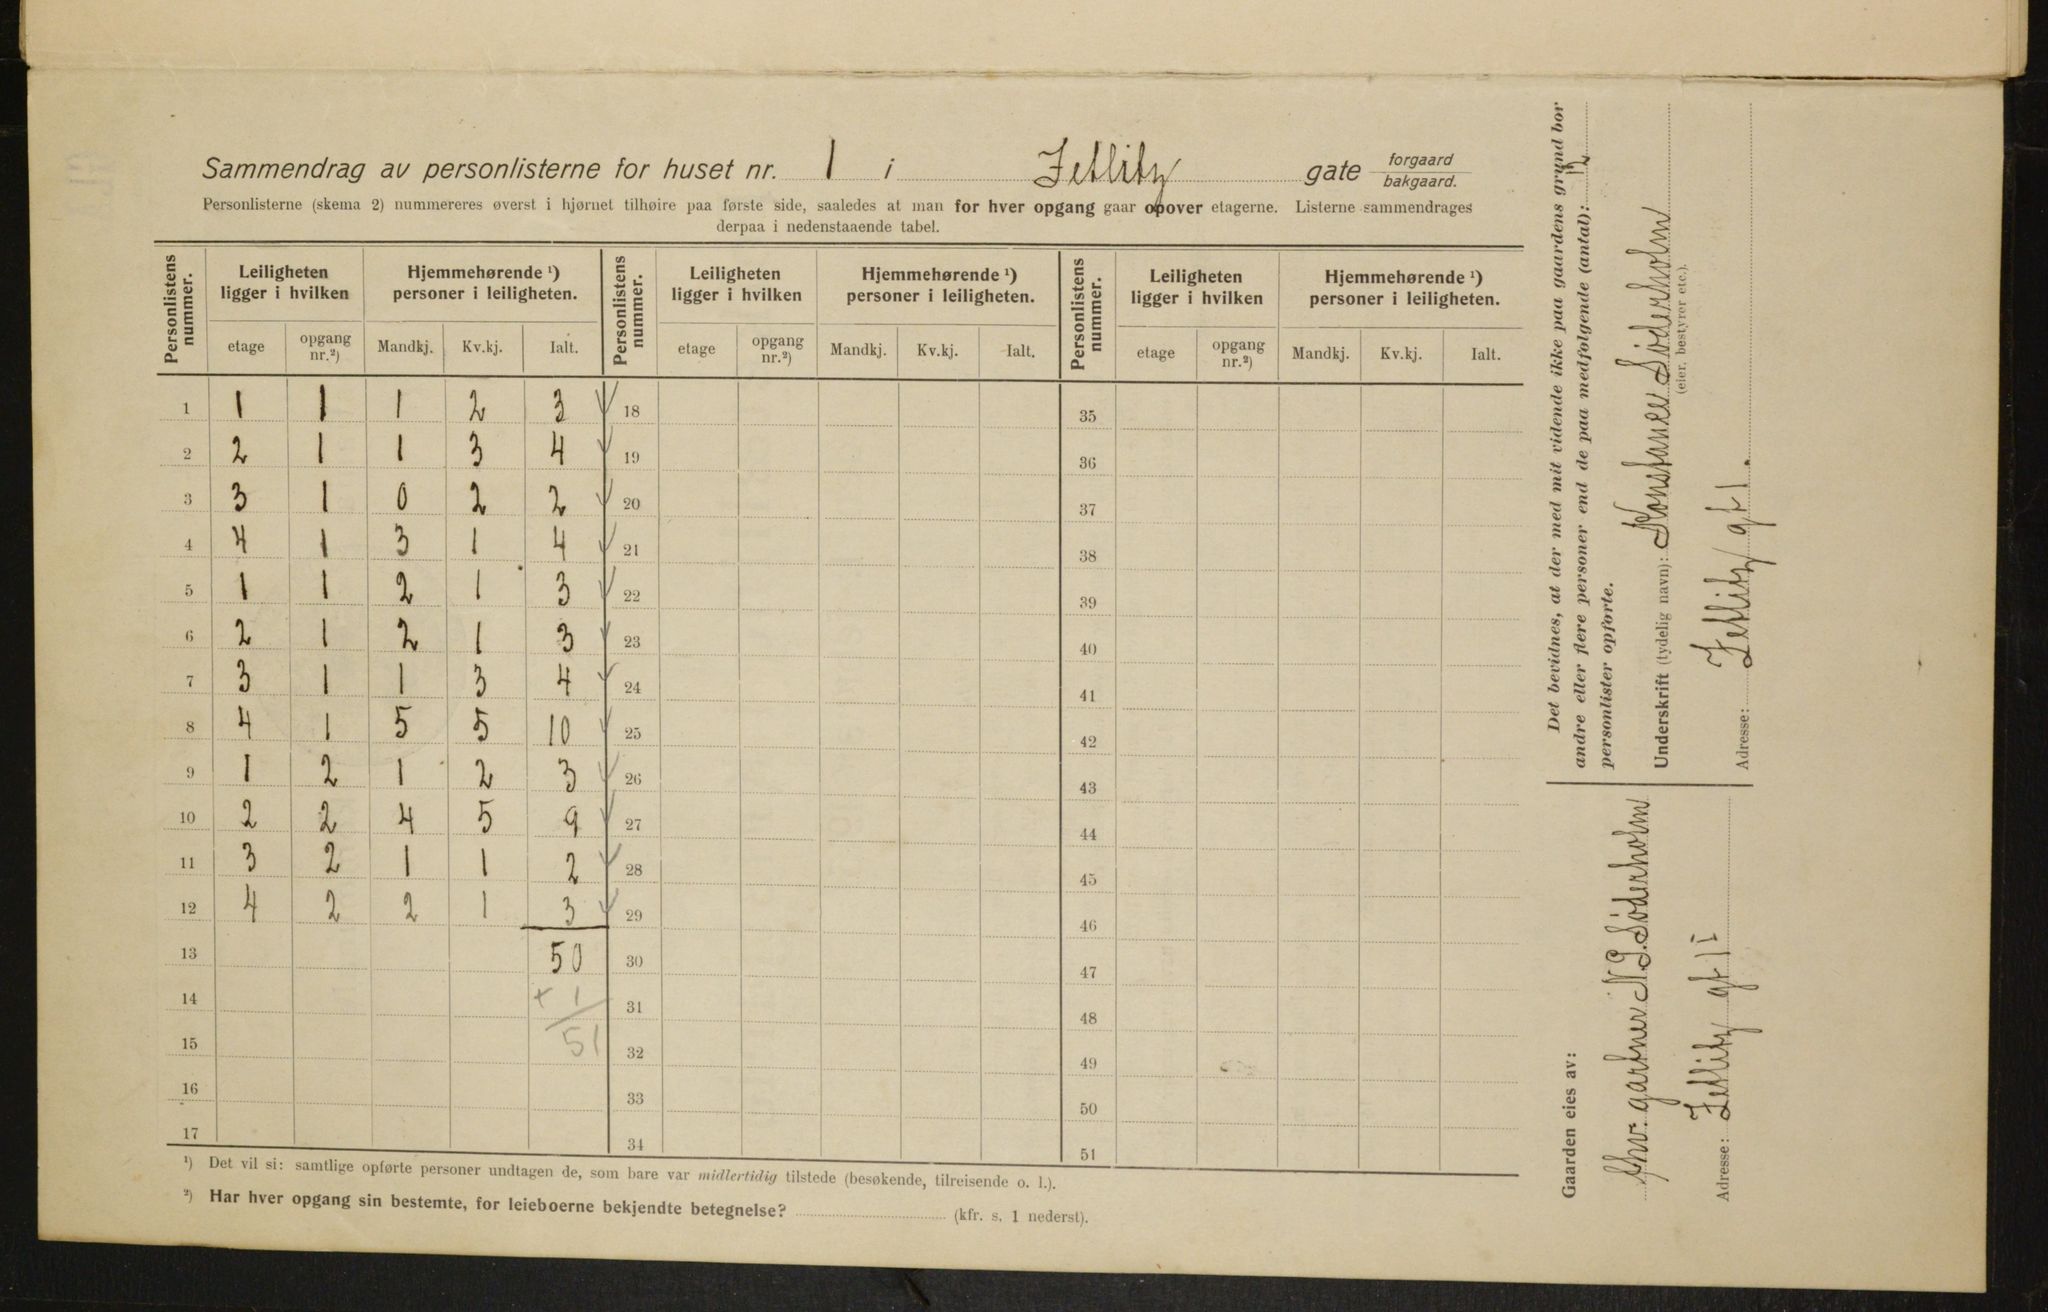 Sammendrag av personlisterne for huset nr. 1 i Zetlitz gate forgaard bakgaard.
Personlisterne (skema 2) nummereres øverst i hjørnet tilhøire paa første side, saaledes at man for hver opgang gaar opover etagerne. Listerne sammendrages
derpaa i nedenstaaende tabel.
Personlistens nummer. Leiligheten ligger i hvilken Hjemmehørende ¹) personer i leiligheten. Personlistens nummer. Leiligheten ligger i hvilken Hjemmehørende ¹) personer i leiligheten. Personlistens nummer. Leiligheten ligger i hvilken Hjemmehørende ¹) personer i leiligheten.
etage opgang nr.²) Mandkj. Kv.kj. Ialt. etage opgang nr.²) Mandkj. Kv.kj. Ialt. etage opgang nr.²) Mandkj. Kv.kj. Ialt.
1 1 1 1 2 3 18 35
2 2 1 1 3 4 19 36
3 3 1 0 2 2 20 37
4 4 1 3 1 4 21 38
5 1 1 2 1 3 22 39
6 2 1 2 1 3 23 40
7 3 1 1 3 4 24 41
8 4 1 5 5 10 25 42
9 1 2 1 2 3 26 43
10 2 2 4 5 9 27 44
11 3 2 1 1 2 28 45
12 4 2 2 1 3 29 46
13 50 30 47
14 + 1 31 48
15 51 32 49
16 33 50
17 34 51
¹) Det vil si: samtlige opførte personer undtagen de, som bare var midlertidig tilstede (besøkende, tilreisende o. l.).
²) Har hver opgang sin bestemte, for leieboerne bekjendte betegnelse? (kfr. s. 1 nederst).
Det bevidnes, at der med mit vidende ikke paa gaardens grund bor
andre eller flere personer end de paa medfolgende (antal): 12
personlister opforte.
Underskrift (tydelig navn): Konstance Søderholm
(eier, bestyrer etc.).
Adresse: Zetlitz gt 1.
Gaarden eies av:
gartner N. P. Søderholm
Adresse: Zetlitz gt 1 I